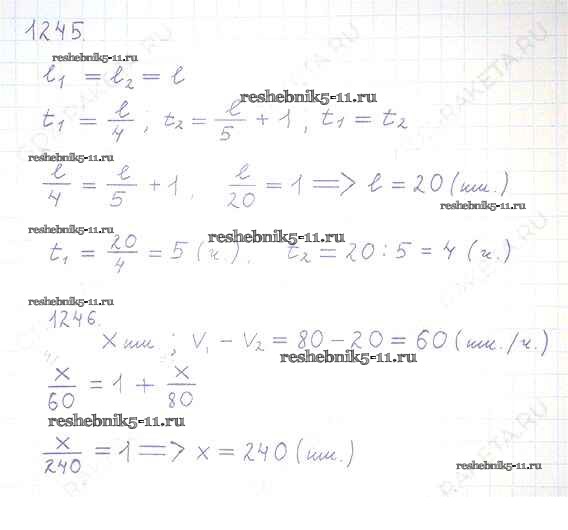 1245.
reshebnik5-11.ru
l₁ = l₂ = l
reshebnik5-11.ru
t₁ = l/4; t₂ = l/5 + 1, t₁ = t₂
reshebnik5-11.ru
l/4 = l/5 + 1, l/20 = 1 => l = 20 (км.)
reshebnik5-11.ru
reshebnik5-11.ru
t₁ = 20/4 = 5 (ч.). t₂ = 20 : 5 = 4 (ч.)
reshebnik5-11.ru
1246.
X км.; V₁ - V₂ = 80 - 20 = 60 (км./ч.)
reshebnik5-11.ru
x/60 = 1 + x/80
reshebnik5-11.ru
x/240 = 1 => x = 240 (км.)
reshebnik5-11.ru